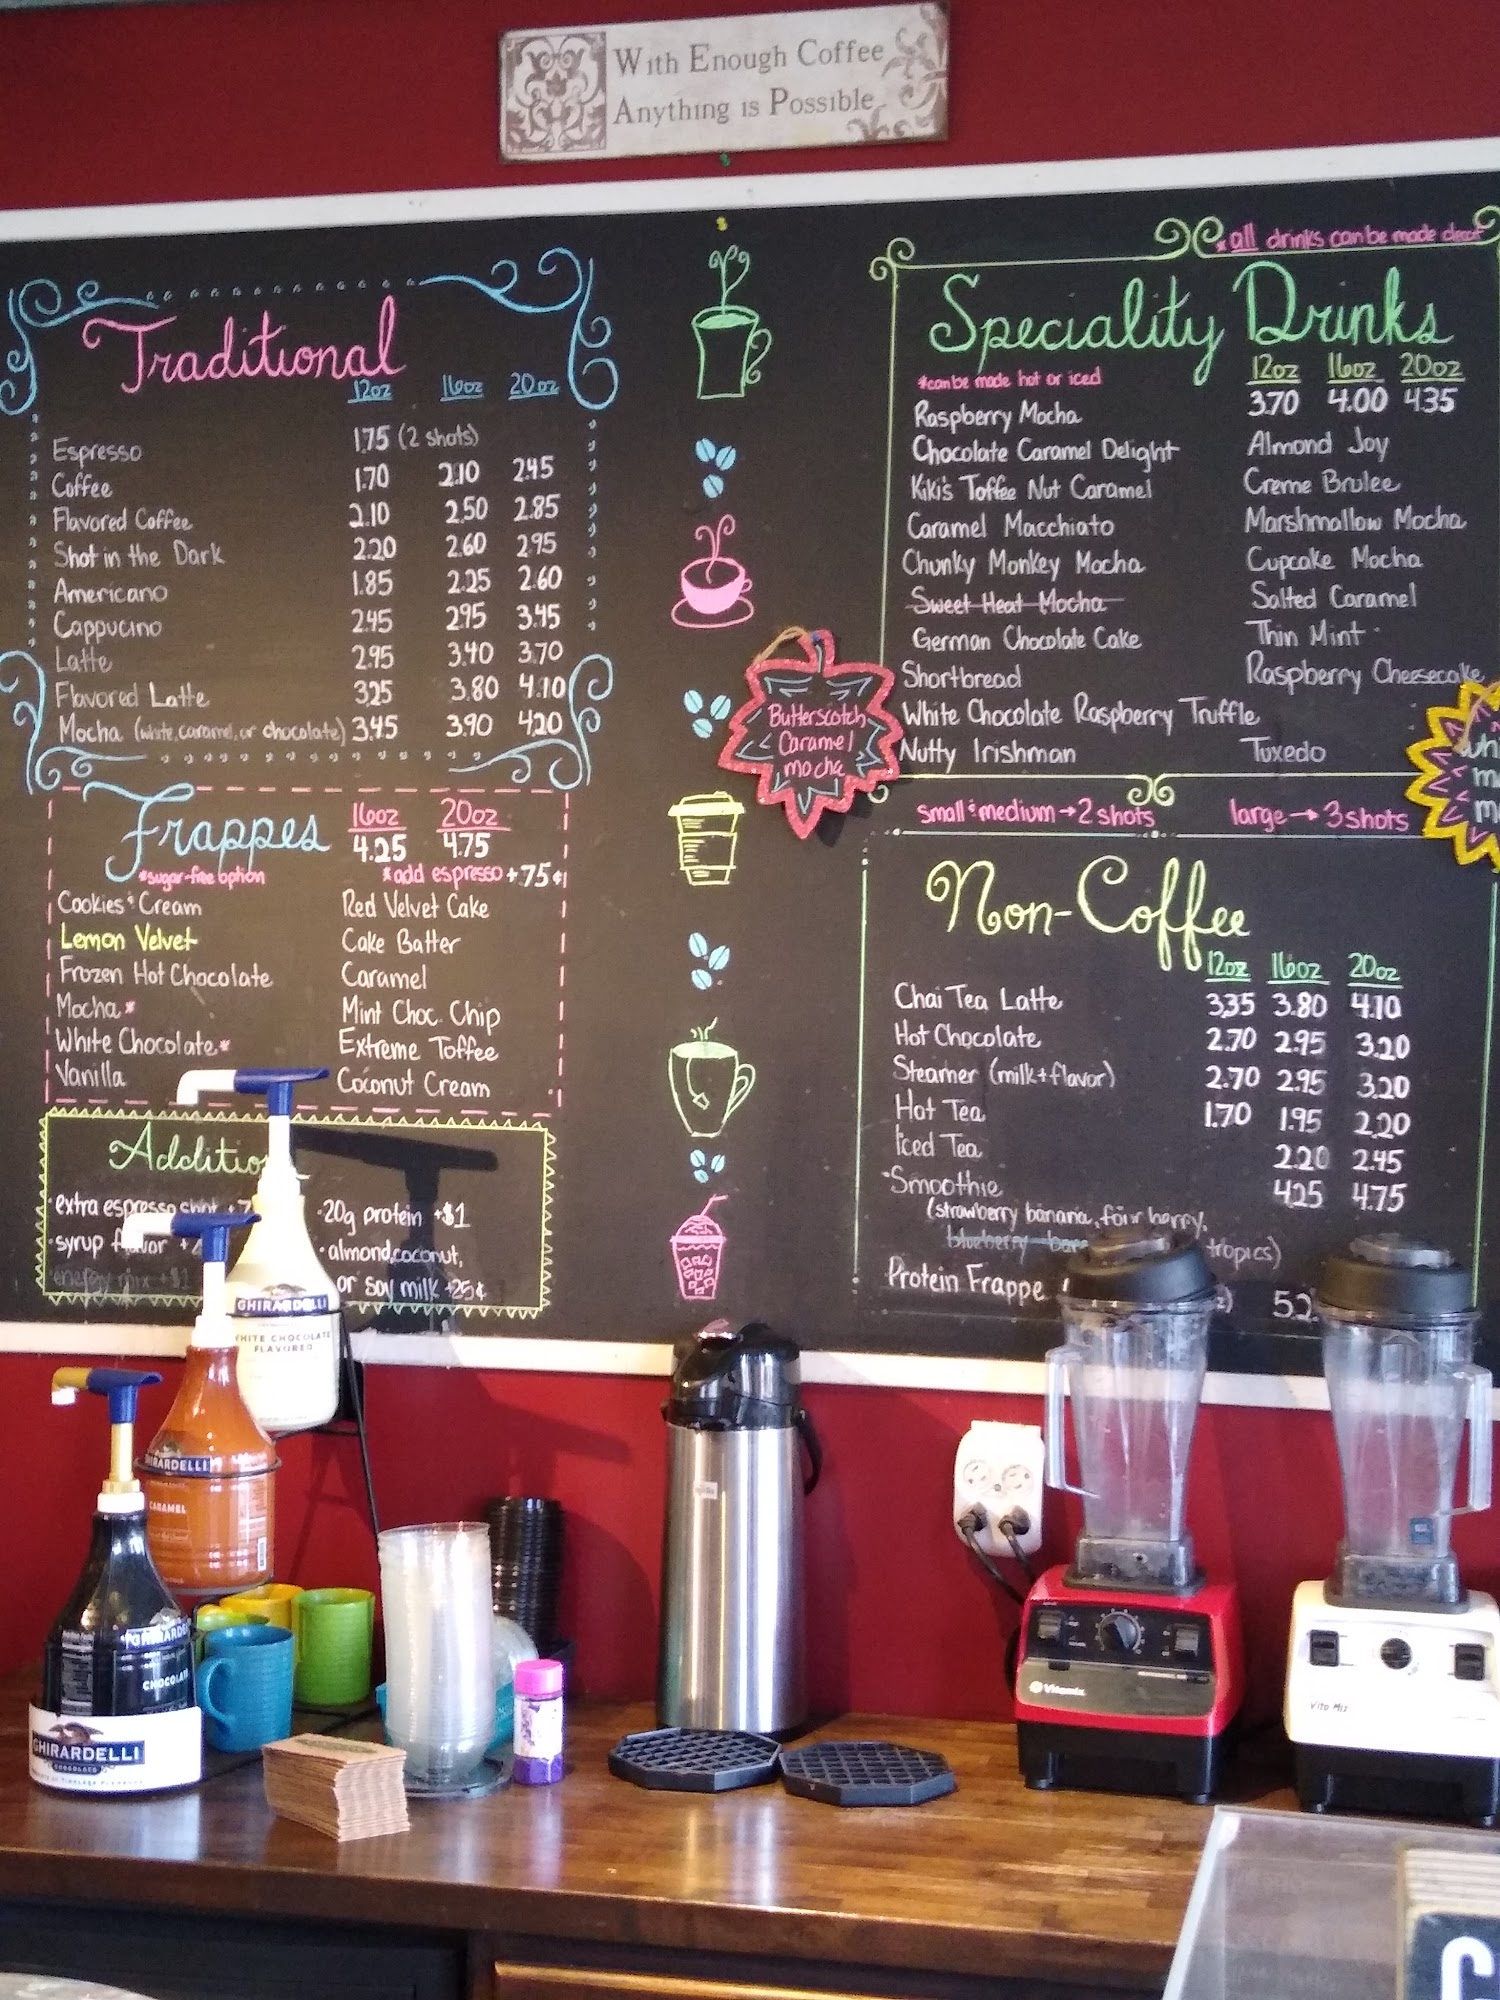 With Enough Coffee
Anything is Possible
Traditional
12oz 16oz 20oz
Espresso 1.75 (2 shots)
Coffee 1.70 2.10 2.45
Flavored Coffee 2.10 2.50 2.85
Shot in the Dark 2.20 2.60 2.95
Americano 1.85 2.25 2.60
Cappucino 2.45 2.95 3.45
Latte 2.95 3.40 3.70
Flavored Latte 3.25 3.80 4.10
Mocha (white, caramel, or chocolate) 3.45 3.90 4.20
Frappes
16oz 20oz
4.25 4.75
*sugar-free option *add espresso +75¢
Cookies & Cream Red Velvet Cake
Lemon Velvet Cake Batter
Frozen Hot Chocolate Caramel
Mocha* Mint Choc. Chip
White Chocolate* Extreme Toffee
Vanilla Coconut Cream
extra espresso
syrup
energy mix +$1
·20g protein +$1
·almond, coconut,
or soy milk +25¢
Butterscotch
Caramel
mocha
*all drinks can be made decaf
Speciality Drinks
*can be made hot or iced
12oz 16oz 20oz
3.70 4.00 4.35
Raspberry Mocha
Chocolate Caramel Delight Almond Joy
Kiki's Toffee Nut Caramel Creme Brulee
Caramel Macchiato Marshmallow Mocha
Chunky Monkey Mocha Cupcake Mocha
Sweet Heat Mocha Salted Caramel
German Chocolate Cake Thin Mint
Shortbread Raspberry Cheesecake
White Chocolate Raspberry Truffle
Nutty Irishman Tuxedo
small & medium → 2 shots large → 3 shots
Non-Coffee
12oz 16oz 20oz
Chai Tea Latte 3.35 3.80 4.10
Hot Chocolate 2.70 2.95 3.20
Steamer (milk+flavor) 2.70 2.95 3.20
Hot Tea 1.70 1.95 2.20
Iced Tea 2.20 2.45
·Smoothie 4.25 4.75
(strawberry banana, four berry,
blueberry tropics)
Protein Frappe
GHIRARDELLI
WHITE CHOCOLATE
FLAVORED
GHIRARDELLI
CARAMEL
GHIRARDELLI
CHOCOLATE
GHIRARDELLI
CHOCOLATE
Vitamix
Vita Mix